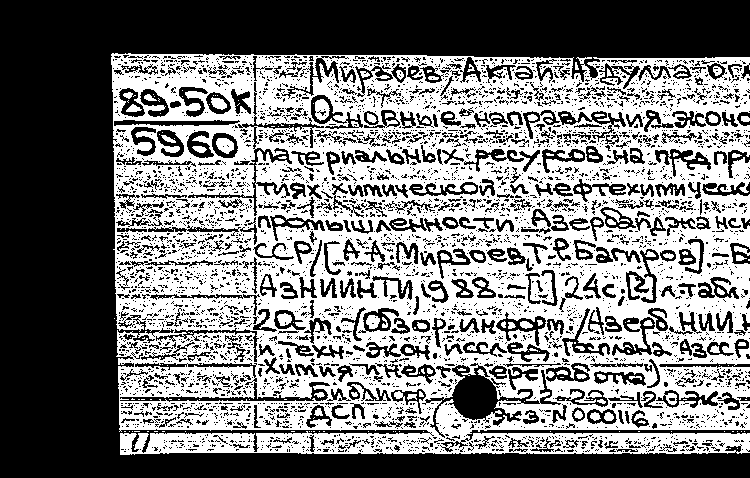 Мирзоев, Актай Абдулла огл
89-50К
5960
Основные направления эконо
материальных ресурсов на предпри
тиях химической и нефтехимическ
промышленности Азербайджанск
ССР/[А.А.Мирзоев, Т.Р.Багиров].-Б
АзНИИНТИ, 1988.-[1], 24с, [2] л.табл.
20см.-(Обзор.информ./Азерб. НИИ н
и техн.-экон. исслед. Госплана АзССР.
"Химия и нефтепереработка").
Библиогр. 22-23. 120 экз
ДСП. Экз. N 000116.